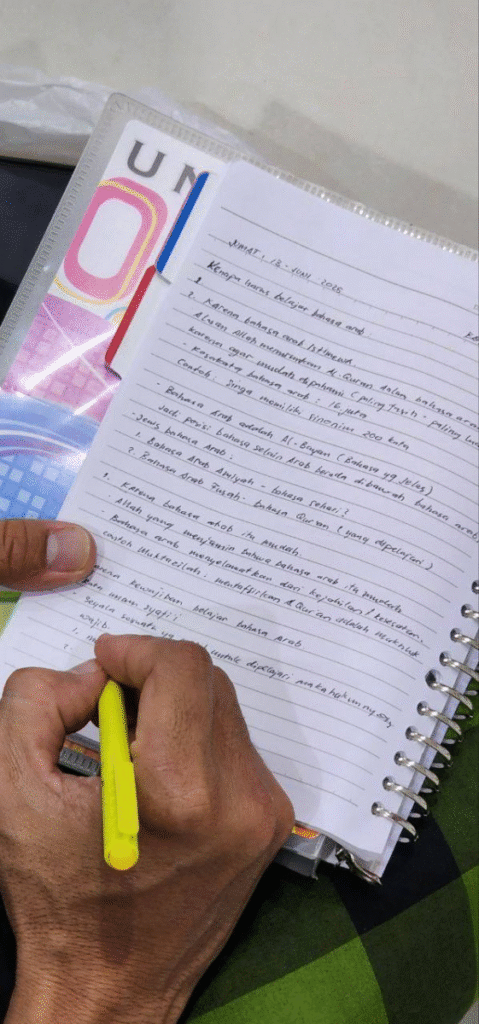 UN
JUMAT, 12 - JUNI, 2026
Kenapa harus belajar bahasa arab
2. Karena bahasa arab Istimewa
Alasan Allah menurunkan Al-Quran dalam bahasa arab
karena agar mudah dipahami (paling fasih - paling
- Kosakata bahasa arab : 16 juta
Contoh : Singa memiliki sinonim 200 kata
- Bahasa Arab adalah Al-Bayan (Bahasa yg jelas)
Jadi posisi bahasa selain Arab berada dibawah bahasa arab
- Jenis bahasa Arab :
1. Bahasa Arab Amiyah - bahasa sehari2
2. Bahasa Arab Fusah - bahasa Qur'an (yang dipelajari)
3. Karena bahasa arab itu mudah
- Allah yang menjamin bahwa bahasa arab itu mudah
- Bahasa arab menyelamatkan dari kejahilan / kesesatan.
contoh Muktazilah : mentafsirkan Al Qur'an adalah Makhluk
kewajiban belajar bahasa arab
imam syafi'i
- Segala sesuatu yg untuk dipelajari maka hukumnya
wajib.
1.
2.